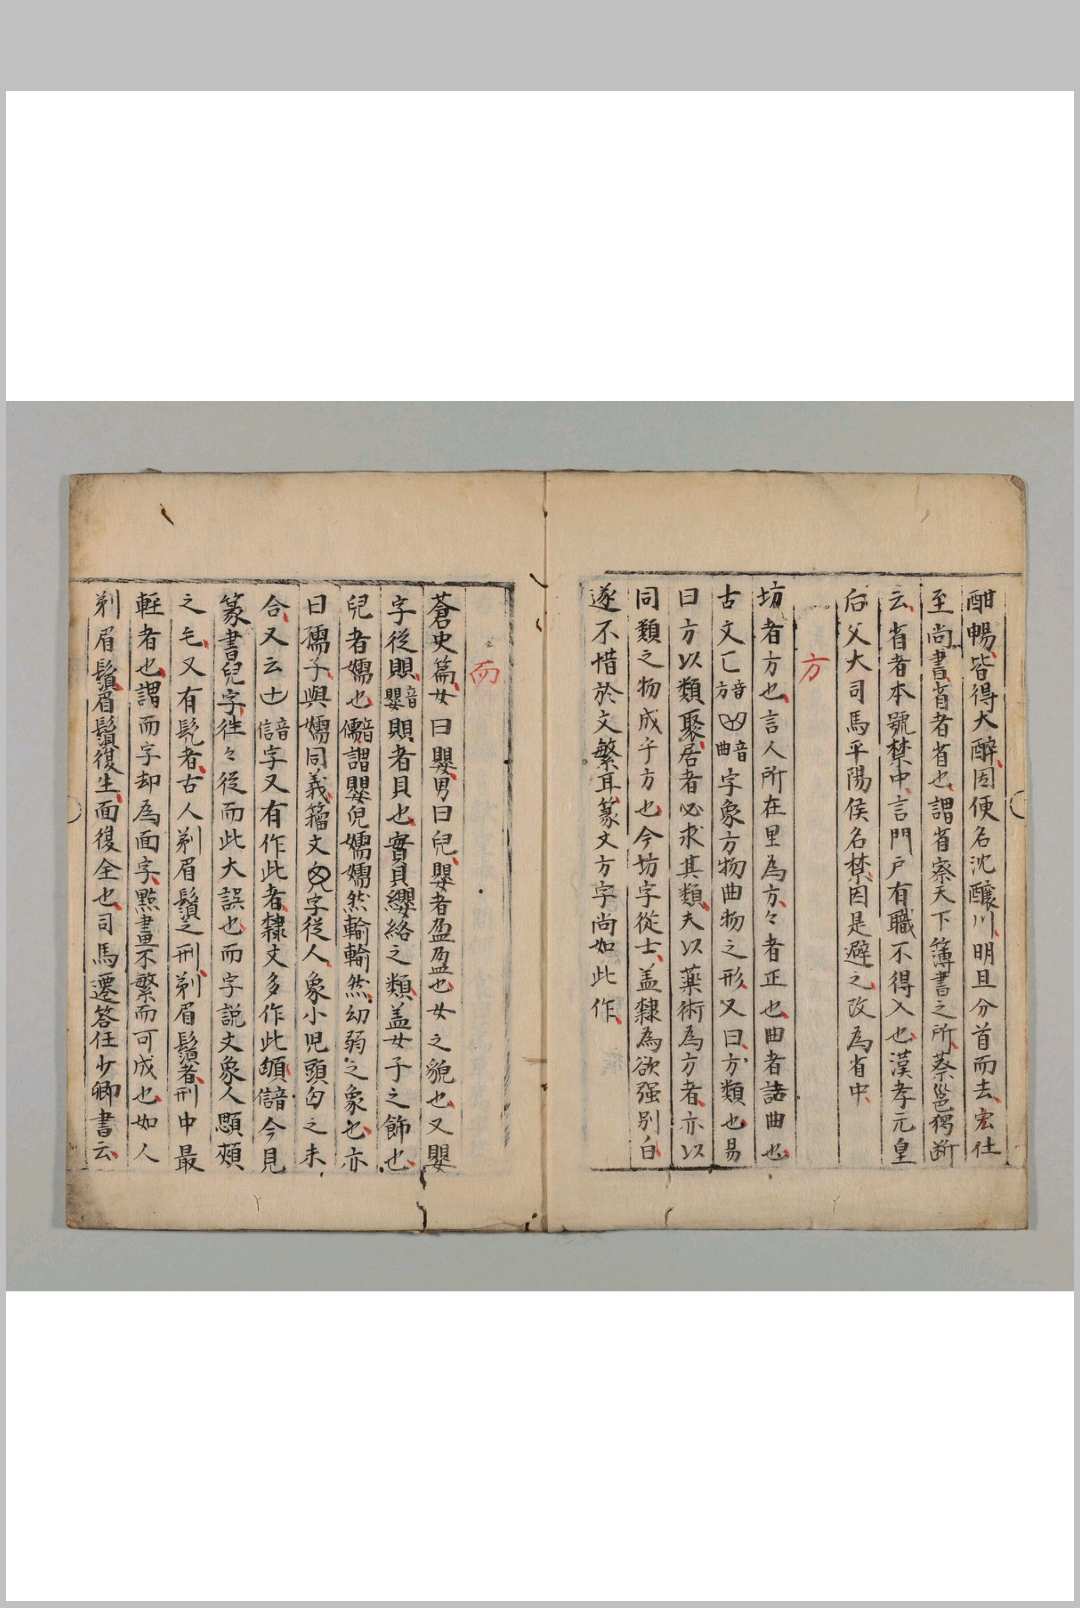 酣暢皆得大醉因便名沈釀川明旦分首而去宏仕
至尚書省者省也謂省察天下簿書之所蔡邕獨斷
云省者本號禁中言門戶有職不得入也漢孝元皇
后父大司馬平陽侯名禁因是避之改為省中
方
坊者方也言人所在里為方々者正也曲者詰曲也
古文匚音方 音曲字象方物曲物之形又曰方類也易
曰方以類聚居者必求其類夫以藥術為方者亦以
同類之物成乎方也今坊字從士盖隸為欲强別白
遂不惜於文繁耳篆文方字尚如此作
而
蒼史篇女曰嬰男曰兒嬰者盈盈也女之貌也又嬰
字從賏音嬰賏者貝也寳貝纓絡之類盖女子之飾也
兒者嬬也音儒謂嬰兒嬬嬬然輸輸然幼弱之象也亦
曰孺子與嬬同義籀文字從人象小児頭囟之未
合又云音信字又有作此者隸文多作此䪿音信今見
篆書兒字徃々從而此大誤也而字說文象人顋頰
之毛又有髡者古人剃眉鬚之刑剃眉鬚者刑中最
輊者也謂而字却為面字點畫不繁而可成也如人
剃眉鬚眉鬚復生面復全也司馬遷答任少卿書云